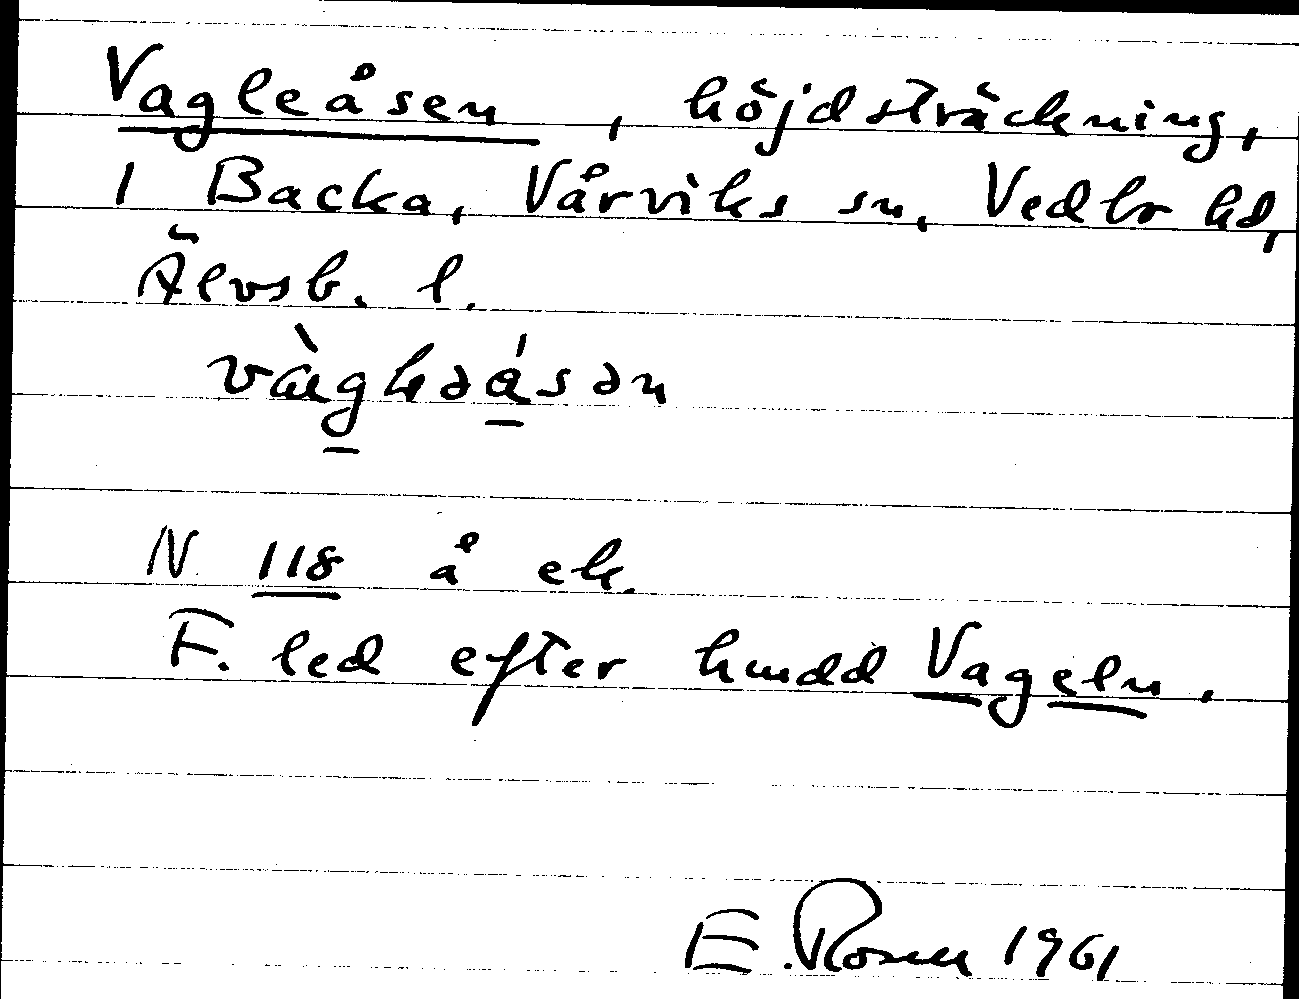 Vagleåsen, höjdsträckning,
1 Backa, Vårviks sn, Vedbo hd,
Älvsb. l.
N 118 å ek.
F. led efter hmdd Vageln.
E. Rosell 1961